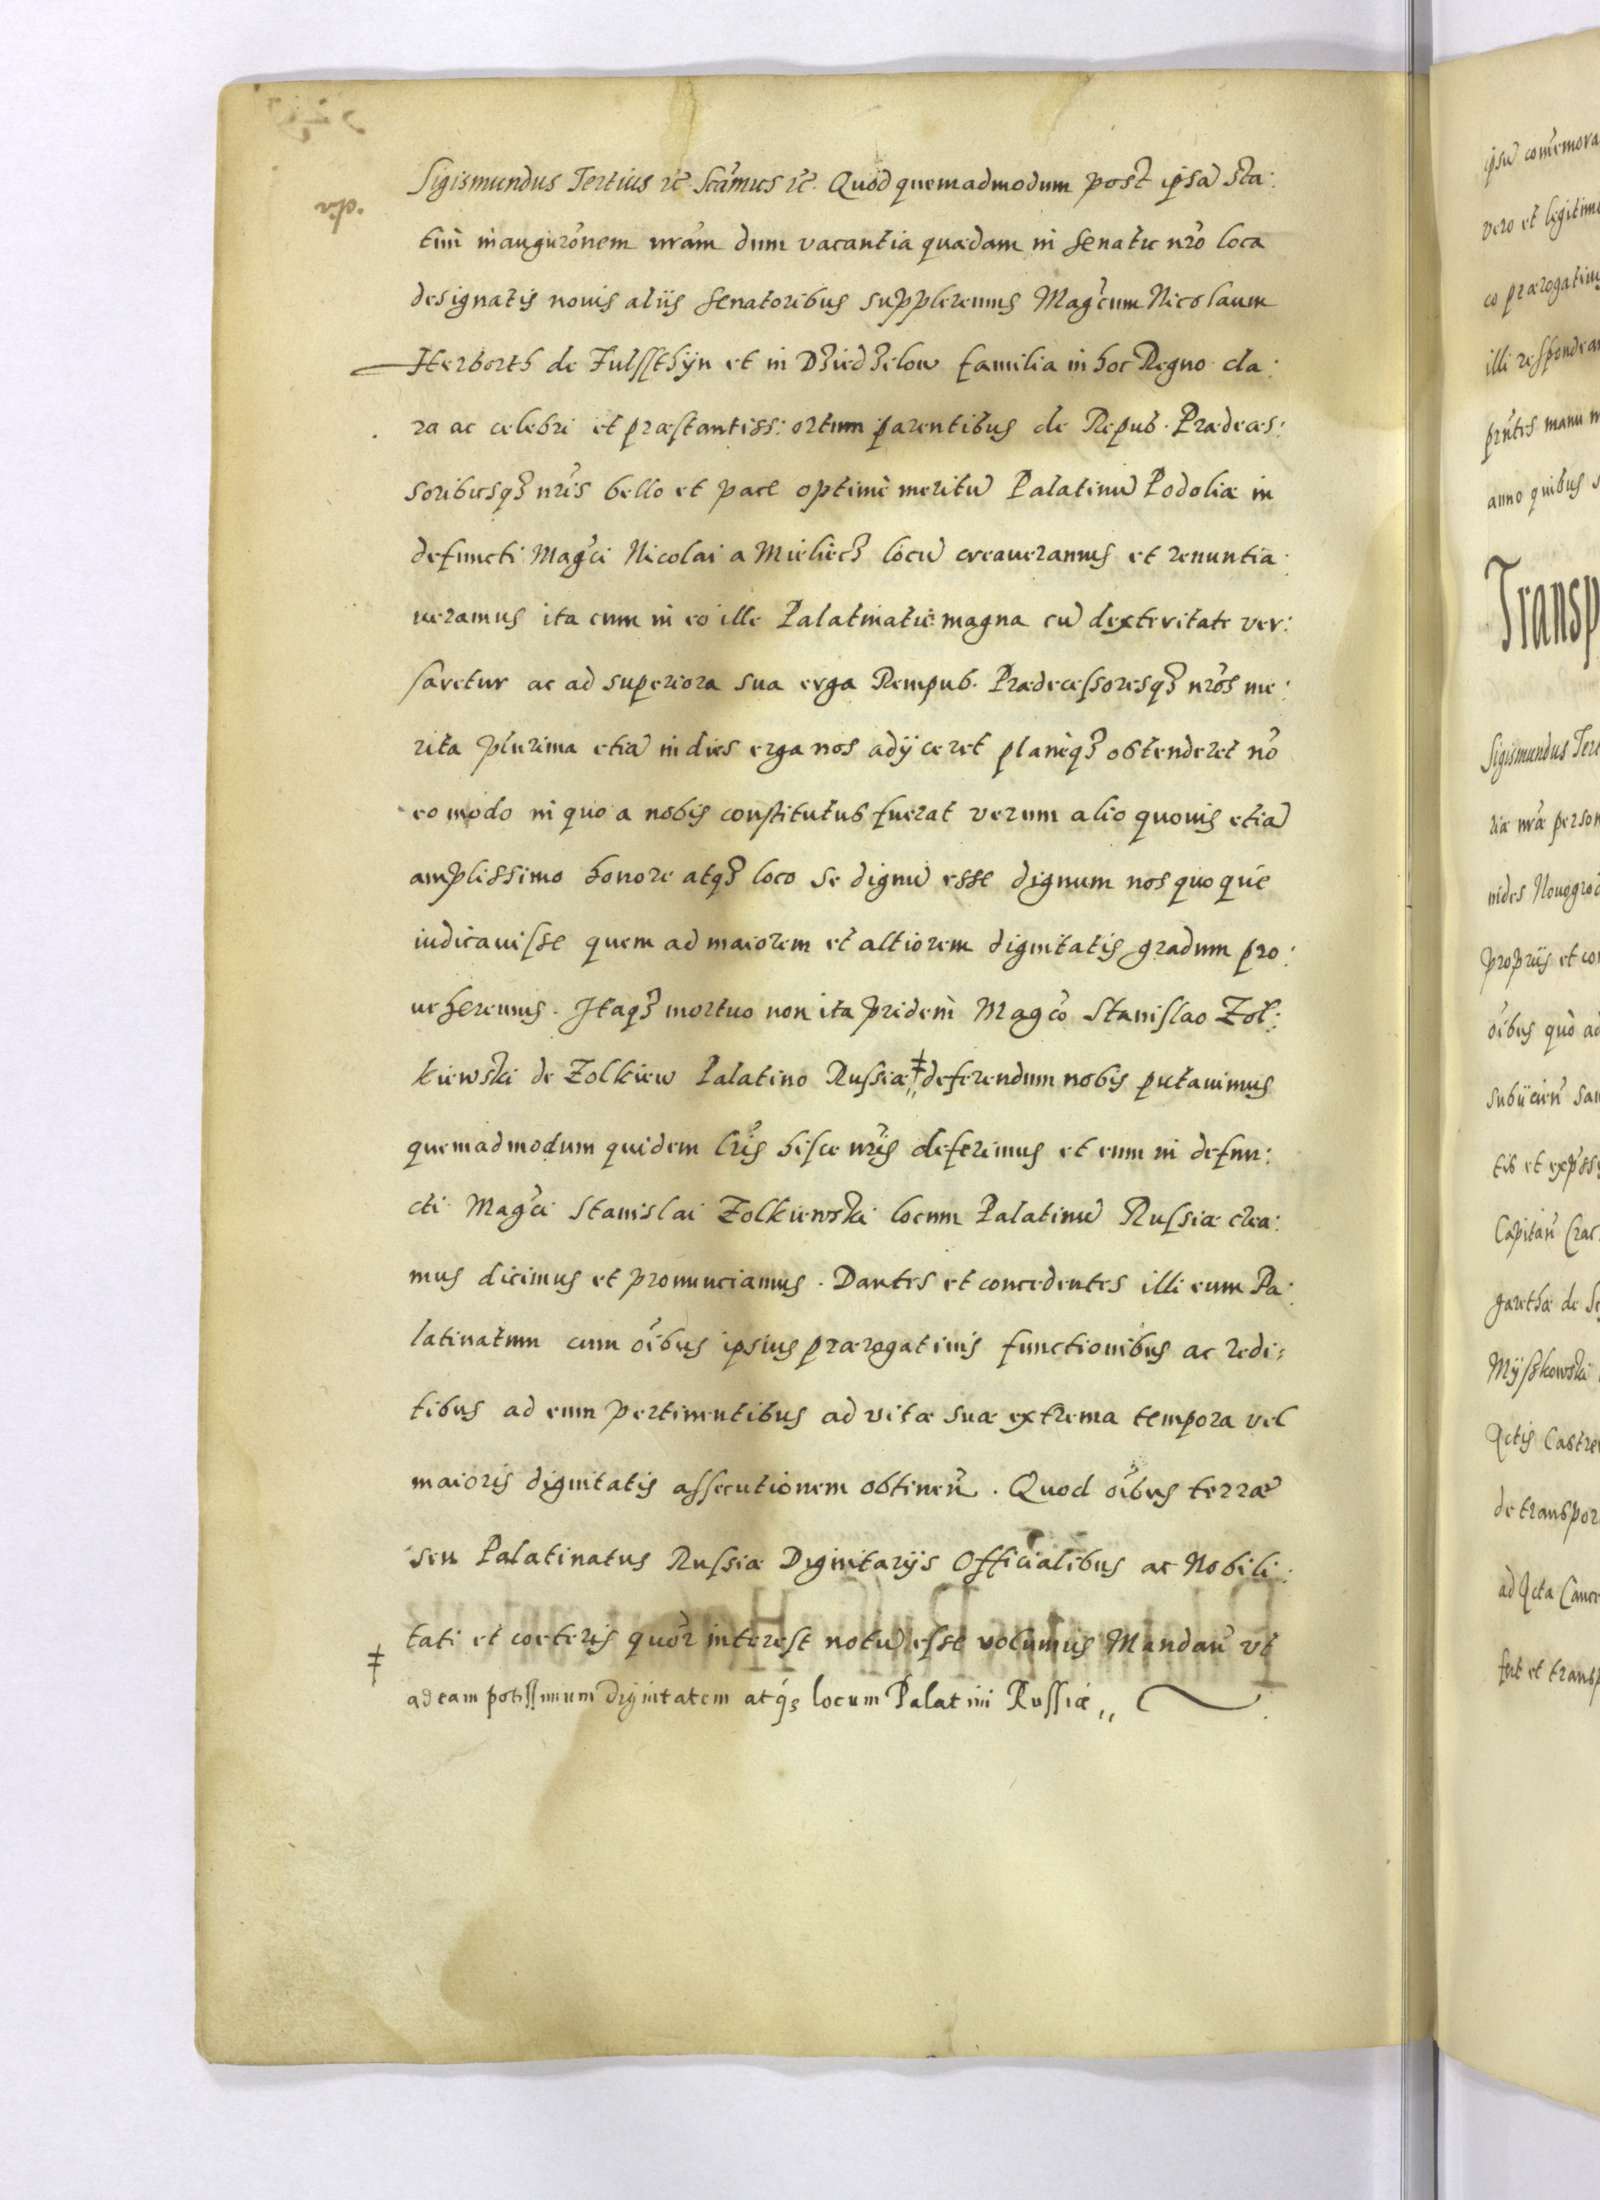 Sigismundus Tertius etc̃ Scãmus etc̃. Quod quemadmodum post ipsã sta:
tim inaugurõnem nrãm dum vacantia quædam in senatu nrõ loca
designatis nouis aliis senatoribus suppleremus Magcũm Nicolaum
Herborth de Fulssthÿn et in Dziedzelow familia in hoc Regno cla:
ra ac celebri et præstantiss: ortum parentibus de Repub. Prædeces:
soribusqȝ nrĩs bello et pace optimè meritũ Palatinũ Podoliæ in
defuncti Magci Nicolai a Mieliecz locũ creaueramus et renuntia:
ueramus ita cum in eo ille Palatinatu magna cũ dexteritate ver:
saretur ac ad superiora sua erga Rempub. Prædecessoresqȝ nrõs me:
rita plurima etiã in dies erga nos adÿceret planèqȝ ostenderet nõ
eo modo in quo a nobis constitutus fuerat verum alio quouis etiã
amplissimo honore atqȝ loco se dignũ esse dignum nos quoque
iudicauisse quem ad maiorem et altiorem dignitatis gradum pro:
ueheremus. Itaqȝ mortuo non ita pridem Magcõ Stanislao Zol:
kiewski de Zolkiew Palatino Russiæ ‡ deferendum nobis putauimus
quemadmodum quidem lrĩs hisce nrĩs deferimus et eum in defun:
cti Magci Stanislai Zolkiewski locum Palatinũ Russiæ crea:
mus dicimus et pronunciamus. Dantes et concedentes illi eum Pa:
latinatum cum oĩbus ipsius prærogatiuis functionibus ac redi:
tibus ad eum pertinentibus ad vitæ suæ extrema tempora vel
maioris dignitatis assecutionem obtineñ. Quod oĩbus terræ
seu Palatinatus Russiæ Dignitariÿs Officialibus ac Nobili:
tati et cœteris quor̃ interest notũ esse volumus Mandañ vt
‡ ad eam potissimum Dignitatem atqȝ locum Palatini Russiæ „
ipsũ com̃emora
vero et legitim
co prærogatiu
illi respondea
prñtes manu
anno quibus
Transp
Sigismundus Ter
riæ nræ person
Nouogrod
proprÿs et co
oĩbus quò ad
subÿcieñ
tis et expss
Capitañ Crac
garethæ de
Mÿszkowski
Actis Castre
de transpor
ad Acta Canc
fert et transp